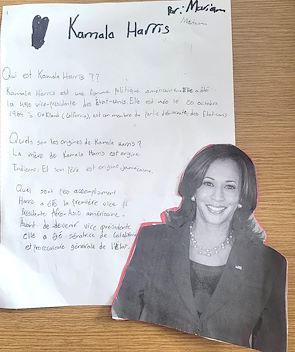 Par: Mariam
Kamala Harris
Qui est Kamala Harris ??
Kamala Harris est une femme politique américaine. Elle a été
la 49e vice-présidente des États-Unis. Elle est née le 20 octobre
1964 à Oakland (California), est un membre du partie démocrate des États-Unis
Quels sont les origines de Kamala Harris ?
La mère de Kamala Harris est origine
Indienne. Et son père est origine jamaïcaine.
Quel sont ses accomplissment
Harris a été la première vice
Présidente Afro-Asio américaine.
Avant de devenir vice présidente
elle a été sénatrice de Californie
et procureure générale de l'État.